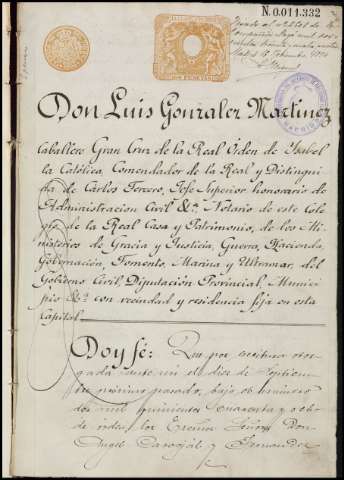 N.0.011.332
Don Luis Gonzalez Martinez
Caballero Gran Cruz de la Real Orden de Ysabel
la Católica, Comendador de la Real y Distingui
da de Carlos Tercero, Jefe Superior honorario de
Administracion Civil &ª Notario de este Cole
gio de la Real Casa y Patrimonio, de los Mi
nisterios de Gracia y Justicia, Guerra, Hacienda,
Gobernacion, Fomento, Marina y Ultramar, del
Gobierno Civil, Diputacion Provincial, Munici
pio &ª con vecindad y residencia fija en esta
Capital
Doy fé: Que por escritura otor
gada ante mi el diez de Septiem
bre próximo pasado, bajo el número
dos mil quinientos cuarenta y ocho
de orden, los Excmos Señores Don
Angel Carvajál y Fernandez